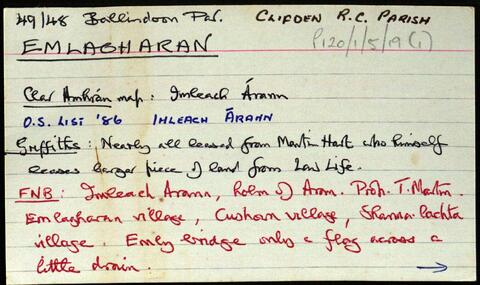 49/48 Ballindoon Par. CLIFDEN R.C. PARISH
P120/1/5/9(1)
EMLAGHARAN
Clár Amhrán map: Imleach Árann
O.S. LIST '86 IMLEACH ÁRANN
Griffiths: Nearly all leased from Martin Hart who himself
leases larger piece of land from Law Life.
FNB: Imleach Arann, holm of Aran. Prop. T. Martin.
Emlagharan village, Cushourn village, Shanna lochta
village. Emly bridge only a flag across a
little drain. →